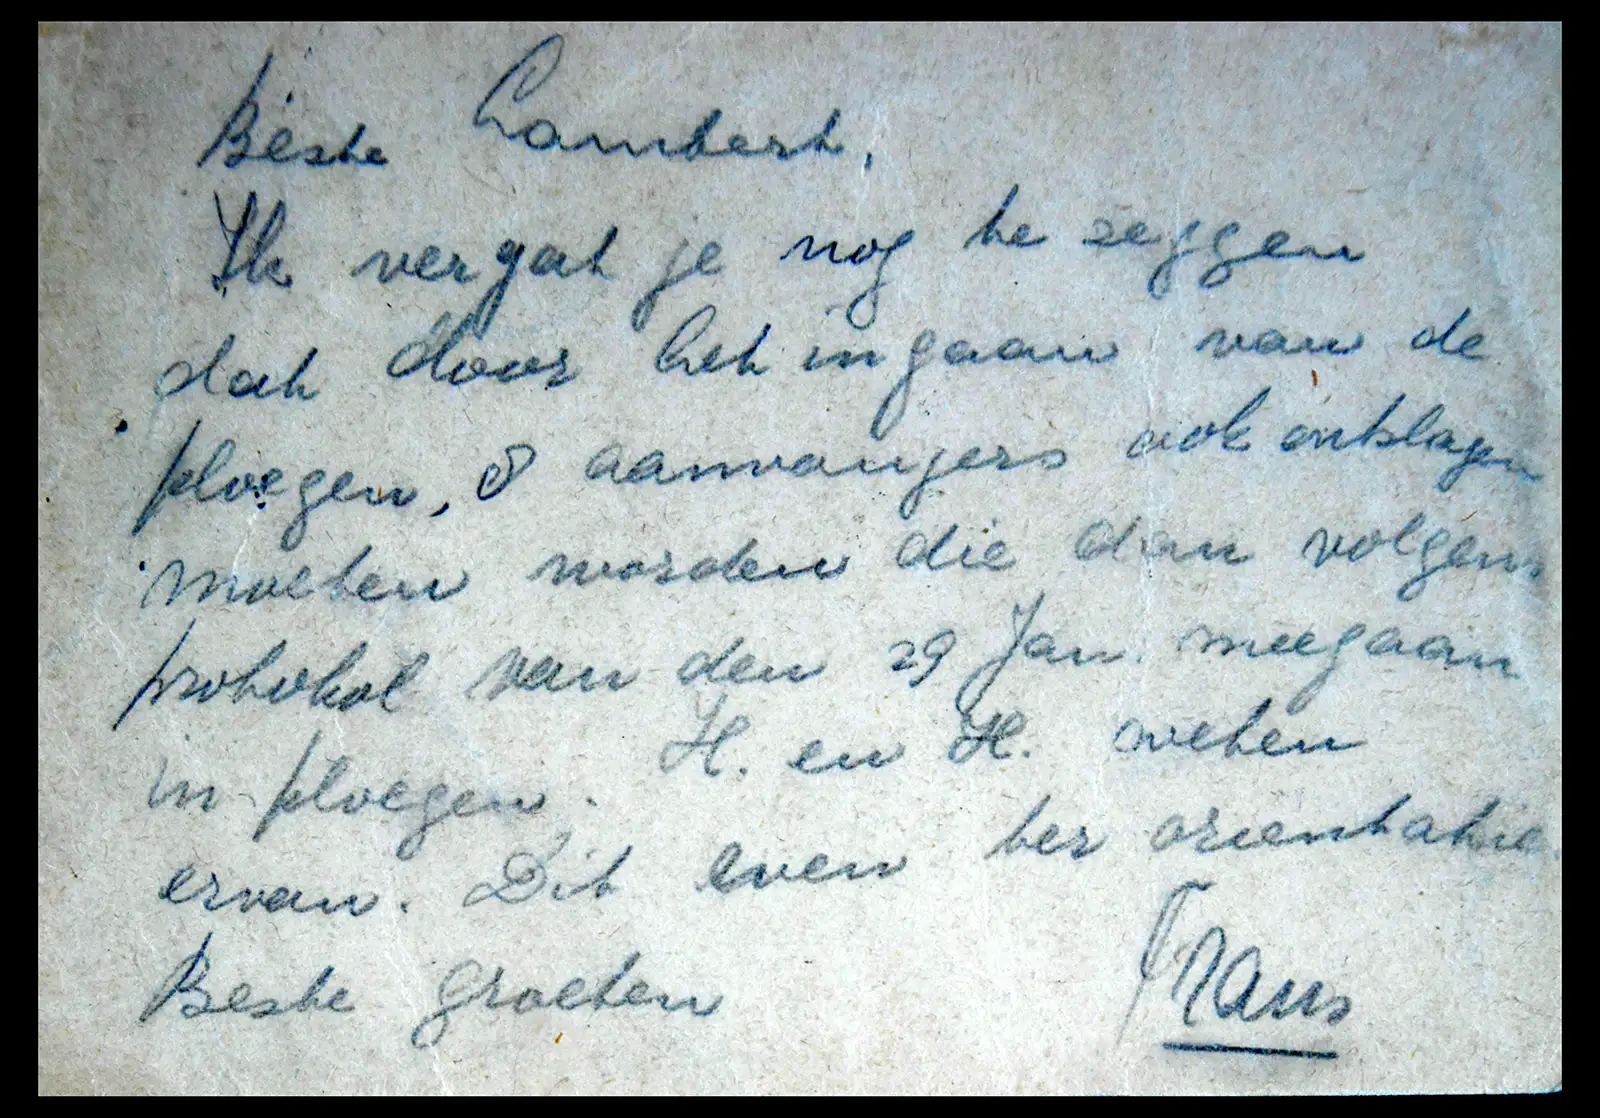 Beste Lambert,
Ik vergat je nog te zeggen
dat door het ingaan van de
ploegen, 8 aanvangers ook ontslagen
moeten worden die dan volgens
protokol van den 29 Jan. meegaan
in ploegen. H. en H. weten
ervan. Dit even ter orientatie.
Beste groeten Frans